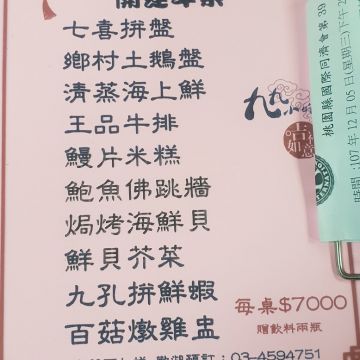 七喜拼盤
鄉村土鵝盤
清蒸海上鮮
王品牛排
鰻片米糕
鮑魚佛跳牆
焗烤海鮮貝
鮮貝芥菜
九孔拼鮮蝦
百菇燉雞盅
每桌$7000
贈飲料兩瓶
03-4594751
九九
吉祥如意
桃園縣國際同濟會第39
時間:107年12月05日(星期三)下午2